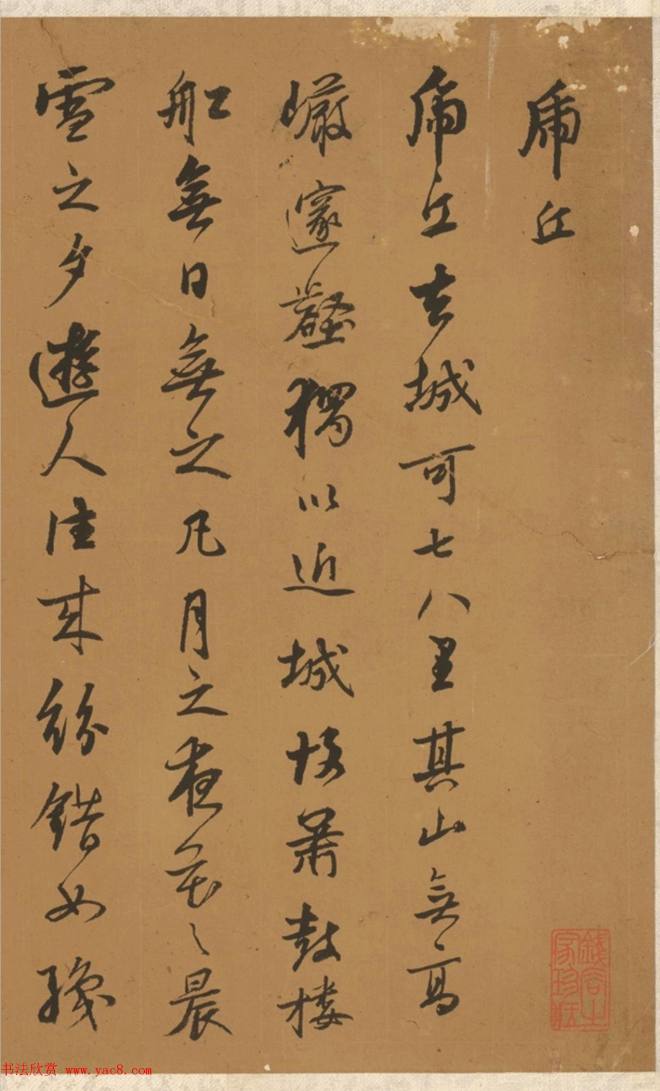 虎丘
虎丘去城可七八里其山無高
巗邃壑獨以近城故簫鼓樓
船無日無之凡月之夜花之晨
雪之夕遊人往来紛錯如織
书法欣赏 www.yac8.com